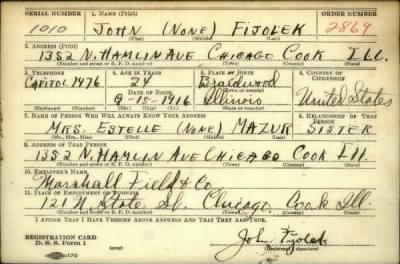 SERIAL NUMBER 1. NAME (Print) ORDER NUMBER
1010 JOHN (NONE) FIJOLEK 2869
(First) (Middle) (Last)
2. ADDRESS (Print)
1352 N. HAMLIN AVE CHICAGO COOK ILL.
(Number and street or R. F. D. number) (Town) (County) (State)
3. TELEPHONE 4. AGE IN YEARS 5. PLACE OF BIRTH 6. COUNTRY OF CITIZENSHIP
CAPITOL 1476 24 Braidwood
DATE OF BIRTH
9-15-1916 Illinois United States
(Exchange) (Number) (Mo.) (Day) (Yr.) (State or country)
7. NAME OF PERSON WHO WILL ALWAYS KNOW YOUR ADDRESS 8. RELATIONSHIP OF THAT PERSON
MRS. ESTELLE (NONE) MAZUR SISTER
(Mr., Mrs., Miss) (First) (Middle) (Last)
9. ADDRESS OF THAT PERSON
1352 N. HAMLIN AVE CHICAGO COOK Ill.
(Number and street or R. F. D. number) (Town) (County) (State)
10. EMPLOYER'S NAME
Marshall Field & Co
11. PLACE OF EMPLOYMENT OR BUSINESS
121 N State St. Chicago, Cook Ill.
(Number and street or R. F. D. number) (Town) (County) (State)
I AFFIRM THAT I HAVE VERIFIED ABOVE ANSWERS AND THAT THEY ARE TRUE.
REGISTRATION CARD
D. S. S. Form 1 (over) John Fijolek